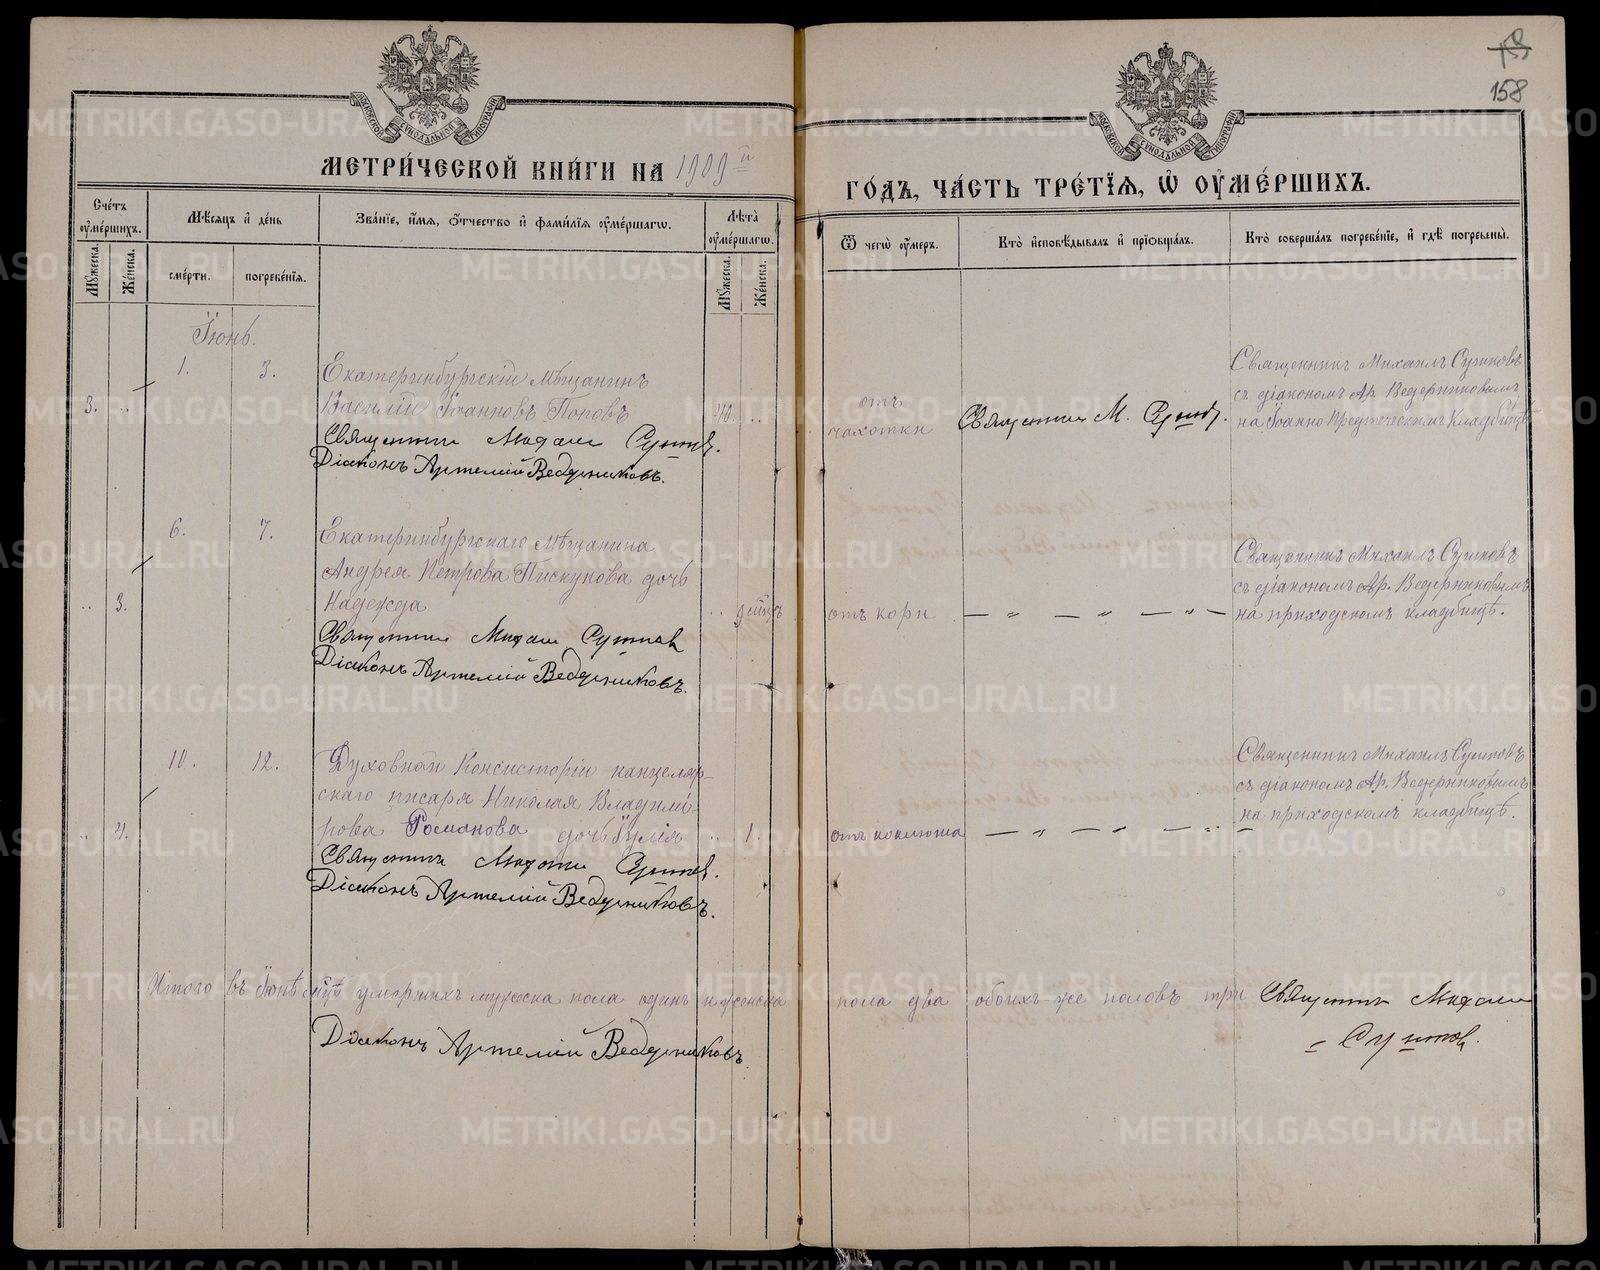 158
МЕТРИ́ЧЕСКОЙ КНИ́ГИ НА 1909й
ГО́ДЪ, ЧА́СТЬ ТРЕ́ТЇѦ, Ѡ ОУМЕ́РШИХЪ.
Сче́тъ оумершихъ.
Мѣсяцъ и де́нь
Зва́нїе, и́мя, ѻ҆тчество и фами́лїя оуме́ршагѡ.
Лѣта̀ оуме́ршагѡ.
Ѿ чегѡ̀ оу́меръ.
Кто̀ исповѣ́дывалъ и прїобща́лъ.
Кто̀ соверша́лъ погребе́нїе, и гдѣ̀ погребены̀.
Мꙋ́жеска.
Же́нска.
сме́рти.
погребе́нїя.
Мꙋ́жеска.
Же́нска.
Іюнь.
1. 3.
Екатеринбургскій мѣщанинъ
3. Василій Іоанновъ Поповъ
Священникъ Михаилъ Сушковъ.
Діаконъ Артемій Ведерниковъ.
отъ чахотки
Священникъ М. Сушковъ.
Священникъ Михаилъ Сушковъ
съ діакономъ Ар. Ведерниковымъ
на Іоанно-Предтеческомъ кладбищѣ
6. 7.
Екатеринбургскаго мѣщанина
Андрея Петрова Пискунова дочь
3. Надежда
Священникъ Михаилъ Сушковъ
Діаконъ Артемій Ведерниковъ.
отъ кори — „ — „ — „ —
Священникъ Михаилъ Сушковъ
съ діакономъ Ар. Ведерниковымъ
на приходскомъ кладбищѣ.
10. 12.
Духовной Консисторіи канцеляр-
скаго писаря Николая Владимі-
4. рова Романова дочь 1.
Священникъ Михаилъ Сушковъ.
Діаконъ Артемій Ведерниковъ.
отъ коклюша — „ — „ — „ —
Священникъ Михаилъ Сушковъ
съ діакономъ Ар. Ведерниковымъ
на приходскомъ кладбищѣ.
Итого въ Іюнѣ м-цѣ умершихъ мужска пола одинъ и женска пола два обоихъ же половъ три
Священникъ Михаилъ
Сушковъ.
Діаконъ Артемій Ведерниковъ.
METRIKI.GASO-URAL.RU